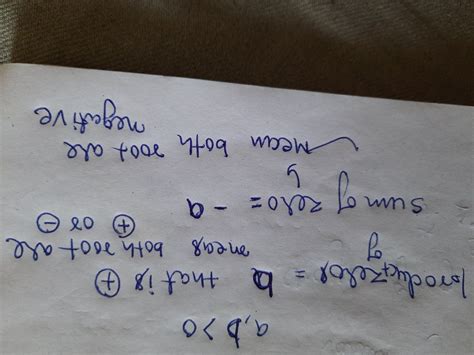 a,b > 0
Product of zeros = b that is ⊕
means both root are
⊕ or ⊖
Sum of zero = - a
mean both root are
negative